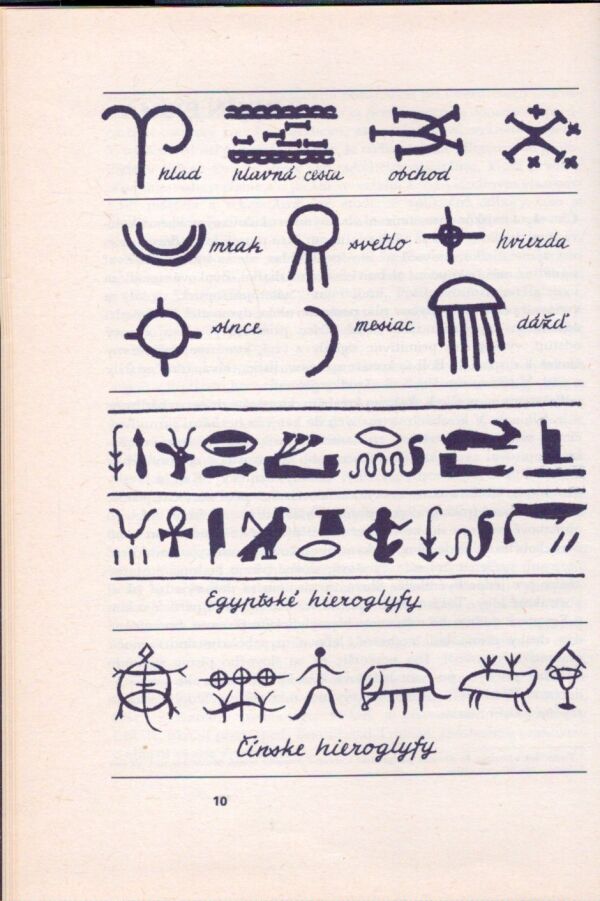 hlad hlavná cesta obchod
mrak svetlo hviezda
slnce mesiac dážď
Egyptské hieroglyfy
Čínske hieroglyfy
10